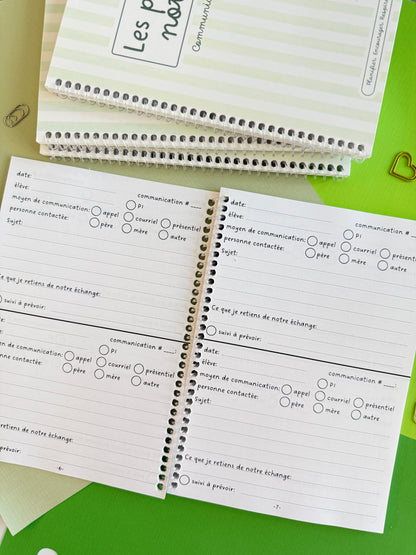 Les p
no
communi
Planifier Encourager Respire
date:
communication # ___:
élève:
PI
moyen de communication:
appel
courriel
présentiel
personne contactée:
père
mère
autre
Sujet:
Ce que je retiens de notre échange:
suivi à prévoir:
communication # ___:
PI
en de communication:
appel
courriel
présentiel
onne contactée:
père
mère
autre
t:
retiens de notre échange:
prévoir:
-6-
date:
communication # ___:
élève:
PI
moyen de communication:
appel
courriel
présentiel
personne contactée:
père
mère
autre
Sujet:
Ce que je retiens de notre échange:
suivi à prévoir:
date:
communication # ___:
élève:
PI
moyen de communication:
appel
courriel
présentiel
personne contactée:
père
mère
autre
Sujet:
Ce que je retiens de notre échange:
suivi à prévoir:
-7-